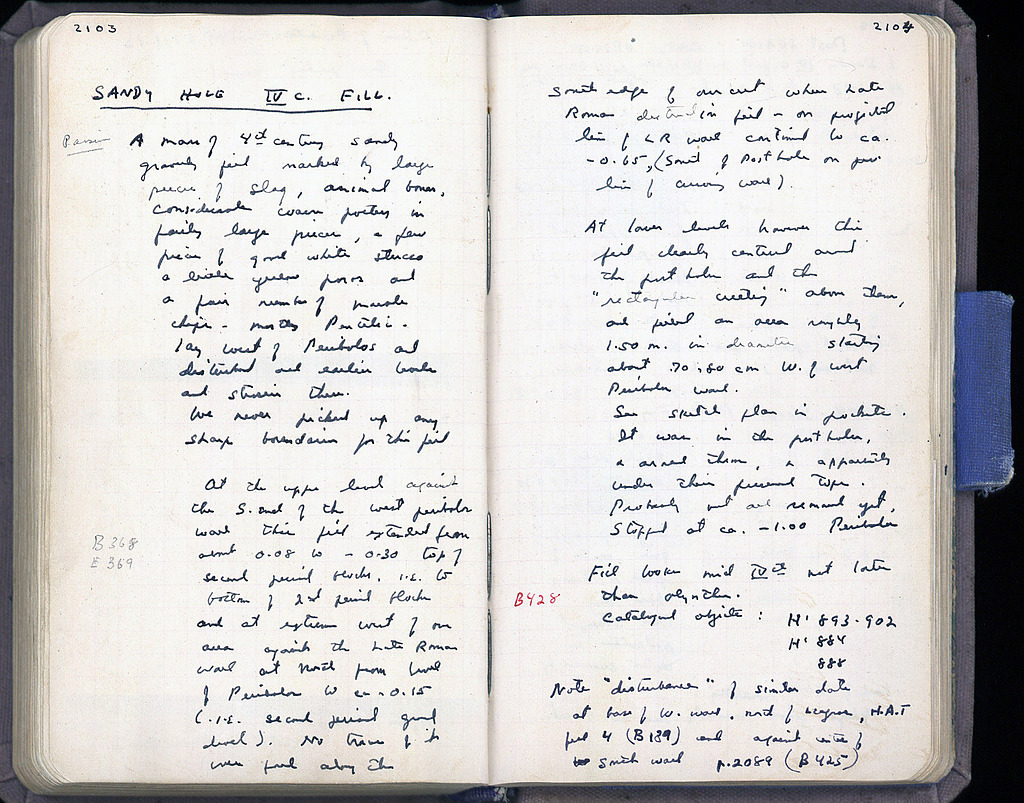 2103
SANDY HOLE IV C. FILL.
A mass of 4th century sandy
gravelly fill marked by large
pieces of slag, animal bones,
considerable coarse pottery in
fairly large pieces, a few
pieces of good white stucco
a little yellow poros and
a fair number of marble
chips - mostly Pentelic.
Lay west of Peribolos and
disturbed all earlier levels
and strosis there.
We never picked up any
sharp boundaries for this fill
At the upper level against
the S. end of the west peribolos
wall this fill extended from
B 368
E 369
about 0.08 to - 0.30 top of
second period blocks, i.e. to
bottom of 2nd period blocks
and at extreme west of our
area against the Late Roman
wall at North from level
of Peribolos to ca - 0.15
(i.e. second period ground
level). No trace of it
was found along the
2104
South edge of our cut where Late
Roman disturbed in fill - on projected
line of LR wall continued to ca.
- 0.65, (South of Post hole on
line of curving wall).
At lower levels however this
fill clearly centered around
the post holes and the
"rectangular cutting" above them,
and filled an area roughly
1.50 m. in diameter starting
about .70-.80 cm W. of west
Peribolos wall.
See sketch plan in pocket.
It was in the post holes,
& around them, & apparently
under their preserved tops.
Probably not all removed yet,
Stopped at ca. - 1.00 Peribolos
Fill looks mid IVth not later
than Olynthus.
B428
Catalogued objects : H' 893-902
H' 884
888
Note "disturbances" of similar date
at base of W. wall, north of, H.A.T
fill 4 (B189) and against center of
South wall p.2089 (B425)